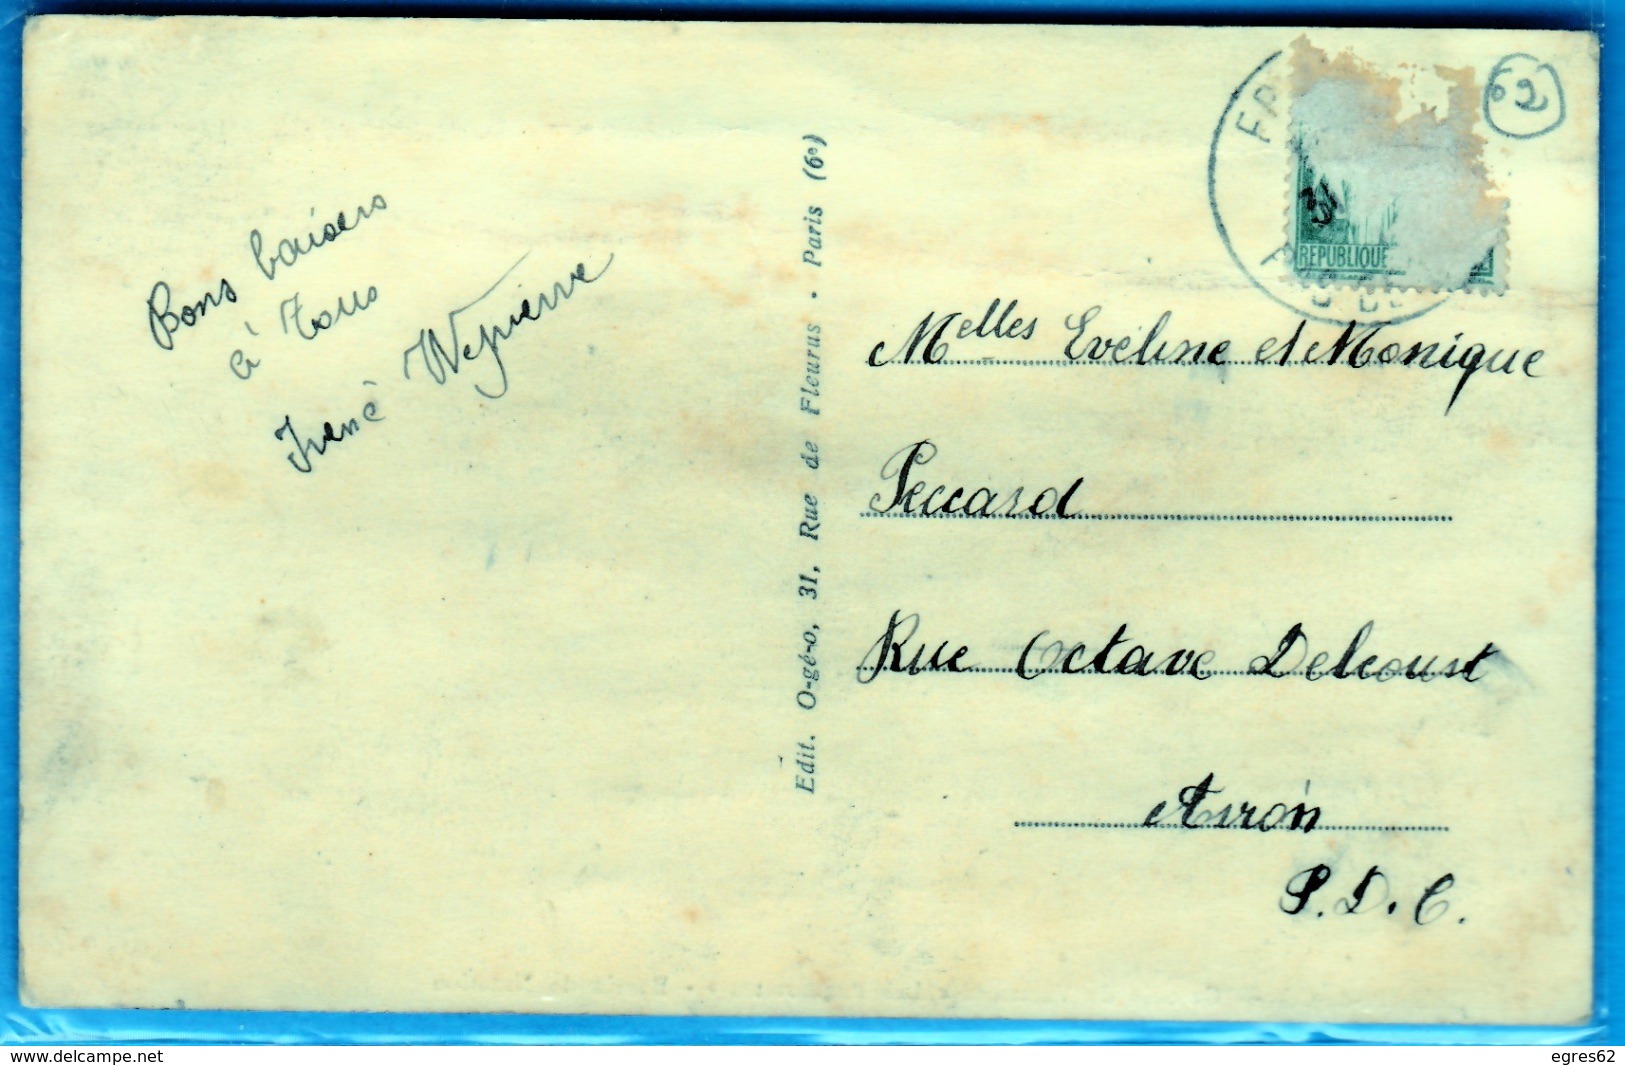 Bons baisers
à tous
Irenè Wepierre
Edit. O-gé-o, 31, Rue de Fleurus - Paris (6e)
62
FA
31
REPUBLIQUE
Melles Eveline et Monique
Peccard
Rue Octave Delcourt
Avion
P.D.C.
www.delcampe.net
egres62